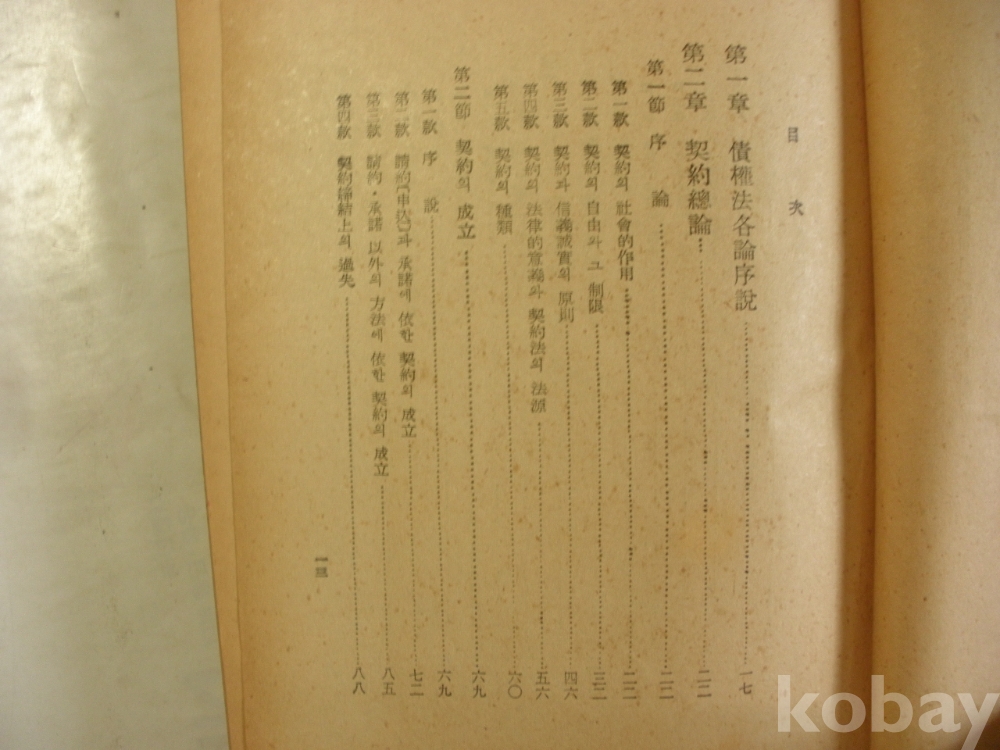 目 次
第一章 債權法各論序說 一七
第二章 契約總論 二二
第一節 序論 二二
第一款 契約의 社會的作用 二二
第二款 契約의 自由와 그 制限 三二
第三款 契約과 信義誠實의 原則 四六
第四款 契約의 法律的意義와 契約法의 法源 五六
第五款 契約의 種類 六〇
第二節 契約의 成立 六九
第一款 序說 六九
第二款 請約(申込)과 承諾에 依한 契約의 成立 七二
第三款 請約・承諾 以外의 方法에 依한 契約의 成立 八五
第四款 契約締結上의 過失 八八
一三
kobay